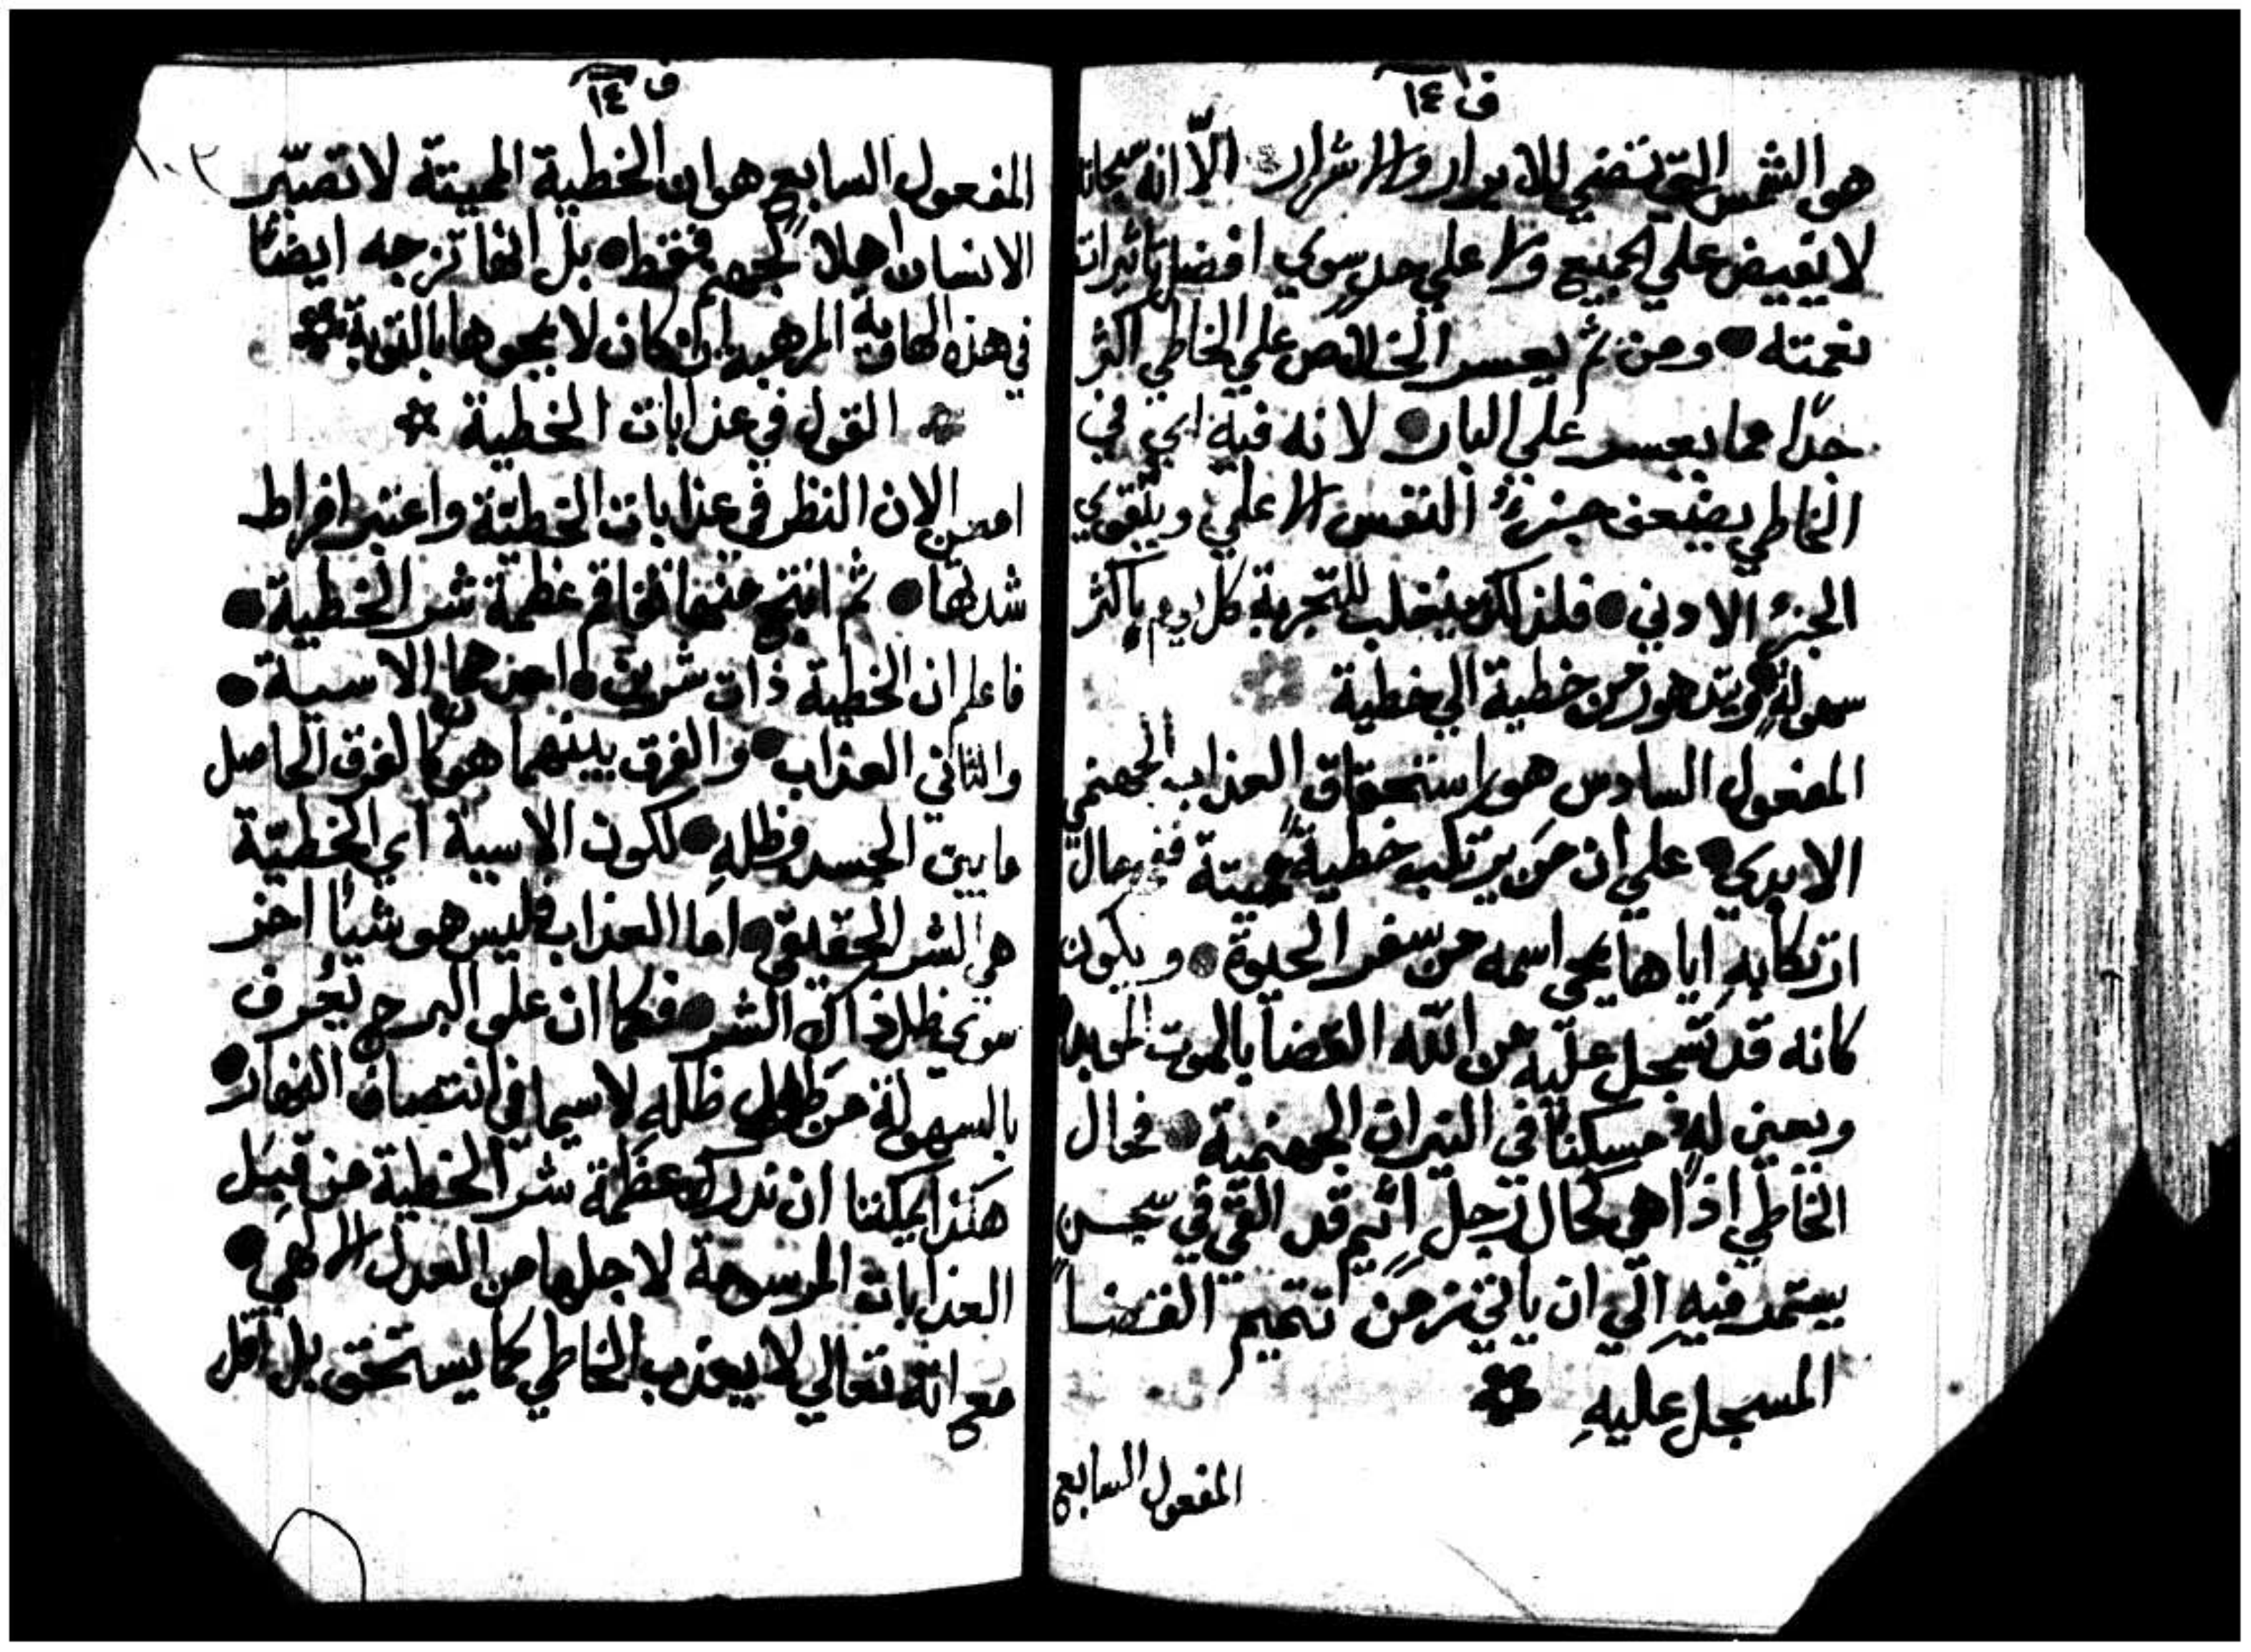 ف ١٤
هو الشمس التي تضي للابرار والاشرار الّا انه سبحانه
لا يفيض علي الجميع ولا علي حد سوي افضل تاثيرات
نعمته ● ومن ثم يعسر الخلاص علي الخاطي اكثر
جدًا مما يعسر علي البار ● لانه فيه اي في
الخاطي يضعف جزءُ النفس الاعلي ويتقوي
الجزءُ الادني ● فلذلك ينغلب للتجربة كل يوم باكثر
سهولةٍ ● ويتدهور من خطية الي خطية
المفعول السادس هو استحقاق العذاب الجهنمي
الابدي ● علي ان مَن يرتكب خطيةً مميتة ففي حال
ارتكابهِ اياها يمحي اسمه من سفر الحيوة ● ويكون
كانه قد تسجل عليه من اللّه القضا بالموت الموبد
ويعين له مسكنًا في النيران الجهنمية ● فحال
الخاطي اذًا هي كحال رجلٍ اثيمٍ قد القي في سجنٍ
يعتمد فيهِ الي ان ياتي زمن تتميم القضا
المسجل عليهِ
المفعول السابع
ف ١٤
١٠٣
المفعول السابع هو ان الخطية المميتة لا تصيّر
الانسان اهلاً لجهنم فقط ● بل انها تزجه ايضًا
في هذه الهاوية المرهبة ان كان لا يمحوها بالتوبة
القول في عذابات الخطية
امعن الان النظر في عذابات الخطيّة واعتبر افراط
شدتها ● ثم انتج منها تفاقم عظمة شر الخطية ●
فاعلم ان الخطية ذات شرين ● احدهما الاسية ●
والثاني العذاب ● والفرق بينهما هو كالفرق الحاصل
ما بين الجسد وظلهِ ● لكون الاسية اي الخطيّة
هي الشر الحقيقي ● اما العذاب فليس هو شيًا اخر
سوي ظل ذاك الشر ● فكما ان علو البرج يُعرف
بالسهولة من طول ظله لا سيما في انتصاف النهار ●
هكذا يمكننا ان ندرك عظمة شر الخطية من قِبَل
العذابات المرسومة لاجلها من العدل الالهي ●
مع انه تعالي لا يعذب الخاطي كما يستحق بل اقل